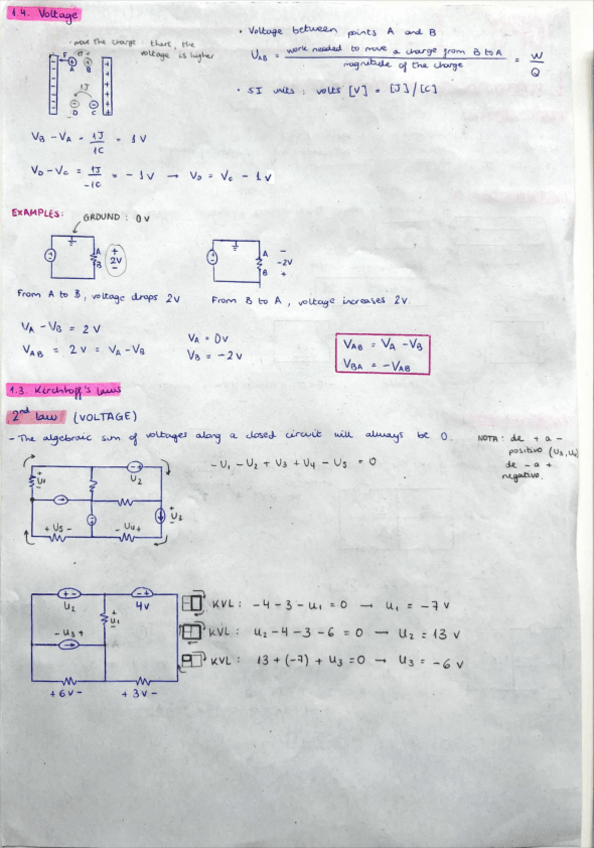 1.4. Voltage
· move the charge there, the
voltage is higher
• Voltage between points A and B
U_AB = work needed to move a charge from B to A / magnitude of the charge = W / Q
• SI units: volts [V] = [J] / [C]
F
A B
1J
D C
V_B - V_A = 1J / 1C = 1V
V_D - V_C = 1J / -1C = -1V → V_D = V_C - 1V
EXAMPLES:
GROUND: 0V
A + 2V - B
A - -2V + B
From A to B, voltage drops 2V
From B to A, voltage increases 2V.
V_A - V_B = 2V
V_AB = 2V = V_A - V_B
V_A = 0V
V_B = -2V
V_AB = V_A - V_B
V_BA = -V_AB
1.3. Kirchhoff's laws
2nd law (VOLTAGE)
- The algebraic sum of voltages along a closed circuit will always be 0.
NOTA: de + a -
positivo (U3, U4)
de - a +
negativo.
-U1 - U2 + U3 + U4 - U5 = 0
- + U2
+ U1 -
+ U3
+ U5 -
- U4 +
+ - U2
- + 4V
+ U1 -
- U3 +
+ 6V -
+ 3V -
KVL: -4-3-U1 = 0 → U1 = -7V
KVL: U2-4-3-6 = 0 → U2 = 13V
KVL: 13+(-7)+U3 = 0 → U3 = -6V